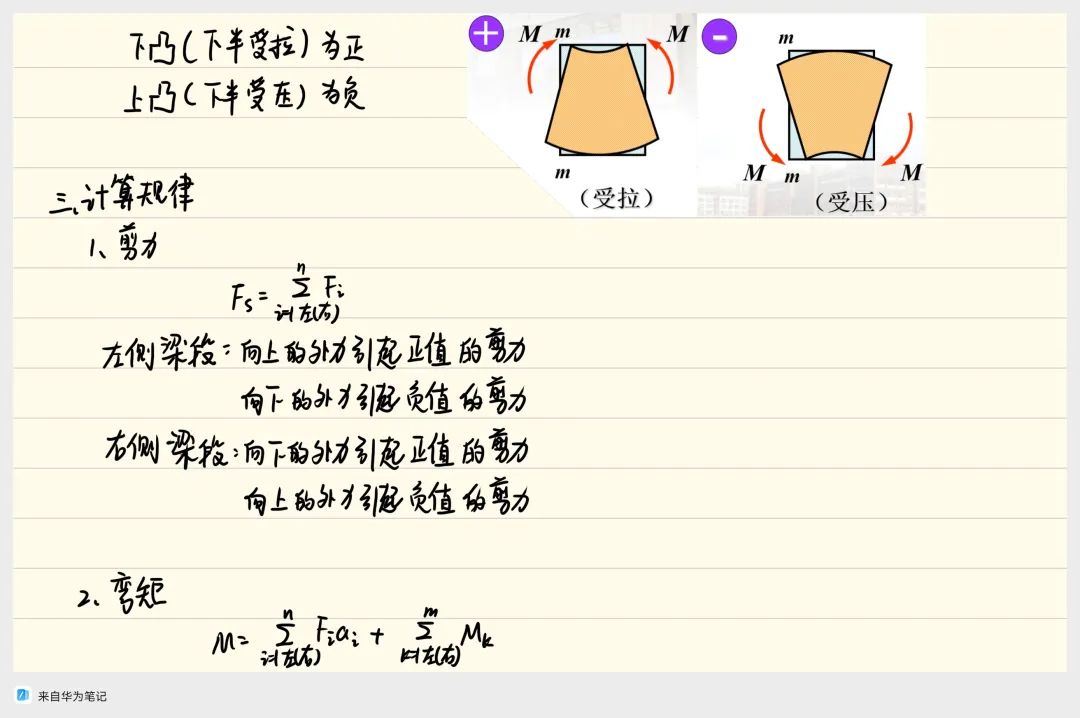 下凸(下半受拉)为正
上凸(下半受压)为负
+ M m M
m
(受拉)
- m
M m M
(受压)
三、计算规律
1、剪力
Fs = Σ Fi
n
i=1左(右)
左侧梁段:向上的外力引起正值的剪力
向下的外力引起负值的剪力
右侧梁段:向下的外力引起正值的剪力
向上的外力引起负值的剪力
2、弯矩
n m
M = Σ Fiai + Σ Mk
i=1左(右) k=1左(右)
来自华为笔记